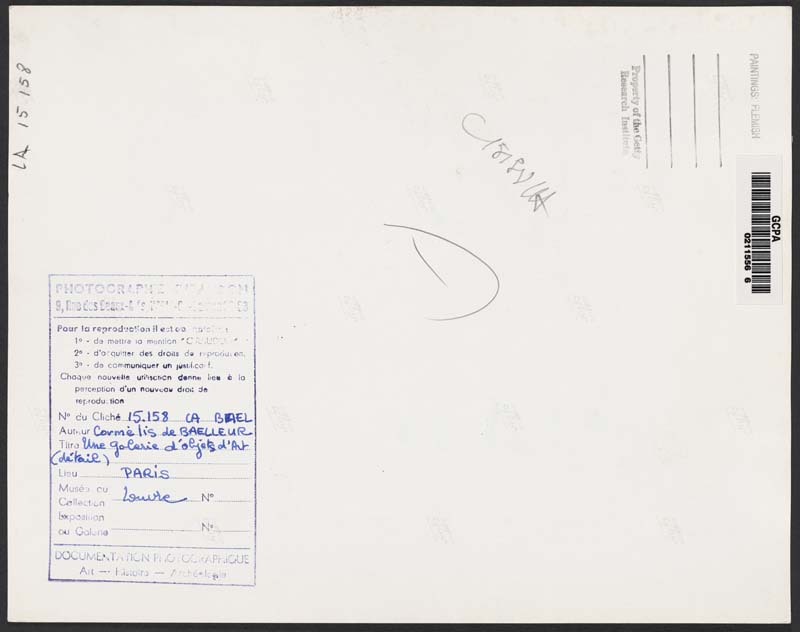 LA 15.158
PAINTINGS: FLEMISH
Property of the Getty
Research Institute
GCPA
0211556 6
PHOTOGRAPHIE
9, Rue des Beaux-Arts
Pour la reproduction il est
1º - de mettre la mention
2º - d'acquitter des droits de reproduction.
3º - de communiquer un justificatif.
Chaque nouvelle utilisation donne lieu à la
perception d'un nouveau droit de
reproduction
Nº du Cliché 15.158 LA BAEL
Auteur Cornélis de BAELLEUR
Titre Une galerie d'objets d'Art
(détail)
Lieu PARIS
Musée ou
Collection Louvre Nº
Exposition
ou Galerie Nº
DOCUMENTATION PHOTOGRAPHIQUE
Art — Histoire — Archéologie